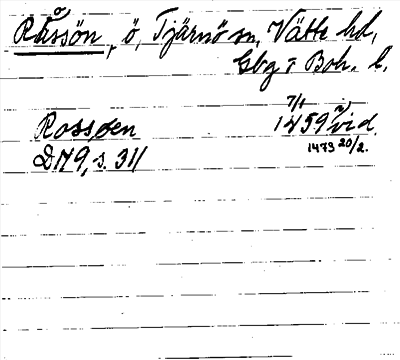 Råssön, ö, Tjärnö sn, Vätte hd,
Gbg o Boh. l.
Rossøen 7/1 1459 vid.
DN9, s. 311 1473 20/2.